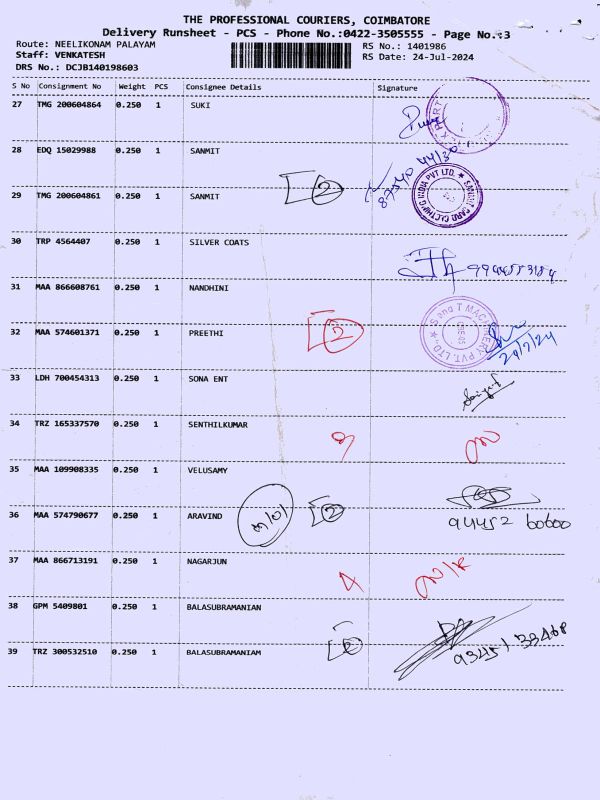 THE PROFESSIONAL COURIERS, COIMBATORE
Delivery Runsheet - PCS - Phone No.:0422-3505555 - Page No.:3
Route: NEELIKONAM PALAYAM
RS No.: 1401986
Staff: VENKATESH
RS Date: 24-Jul-2024
DRS No.: DCJB140198603
S No Consignment No Weight PCS Consignee Details Signature
27 TMG 200604864 0.250 1 SUKI
28 EDQ 15029988 0.250 1 SANMIT
29 TMG 200604861 0.250 1 SANMIT 2
30 TRP 4564407 0.250 1 SILVER COATS
31 MAA 866608761 0.250 1 NANDHINI
32 MAA 574601371 0.250 1 PREETHI
33 LDH 700454313 0.250 1 SONA ENT
34 TRZ 165337570 0.250 1 SENTHILKUMAR
35 MAA 109908335 0.250 1 VELUSAMY
36 MAA 574790677 0.250 1 ARAVIND 2 94452 60600
37 MAA 866713191 0.250 1 NAGARJUN
38 GPM 5409801 0.250 1 BALASUBRAMANIAN
39 TRZ 300532510 0.250 1 BALASUBRAMANIAM 93451 33468